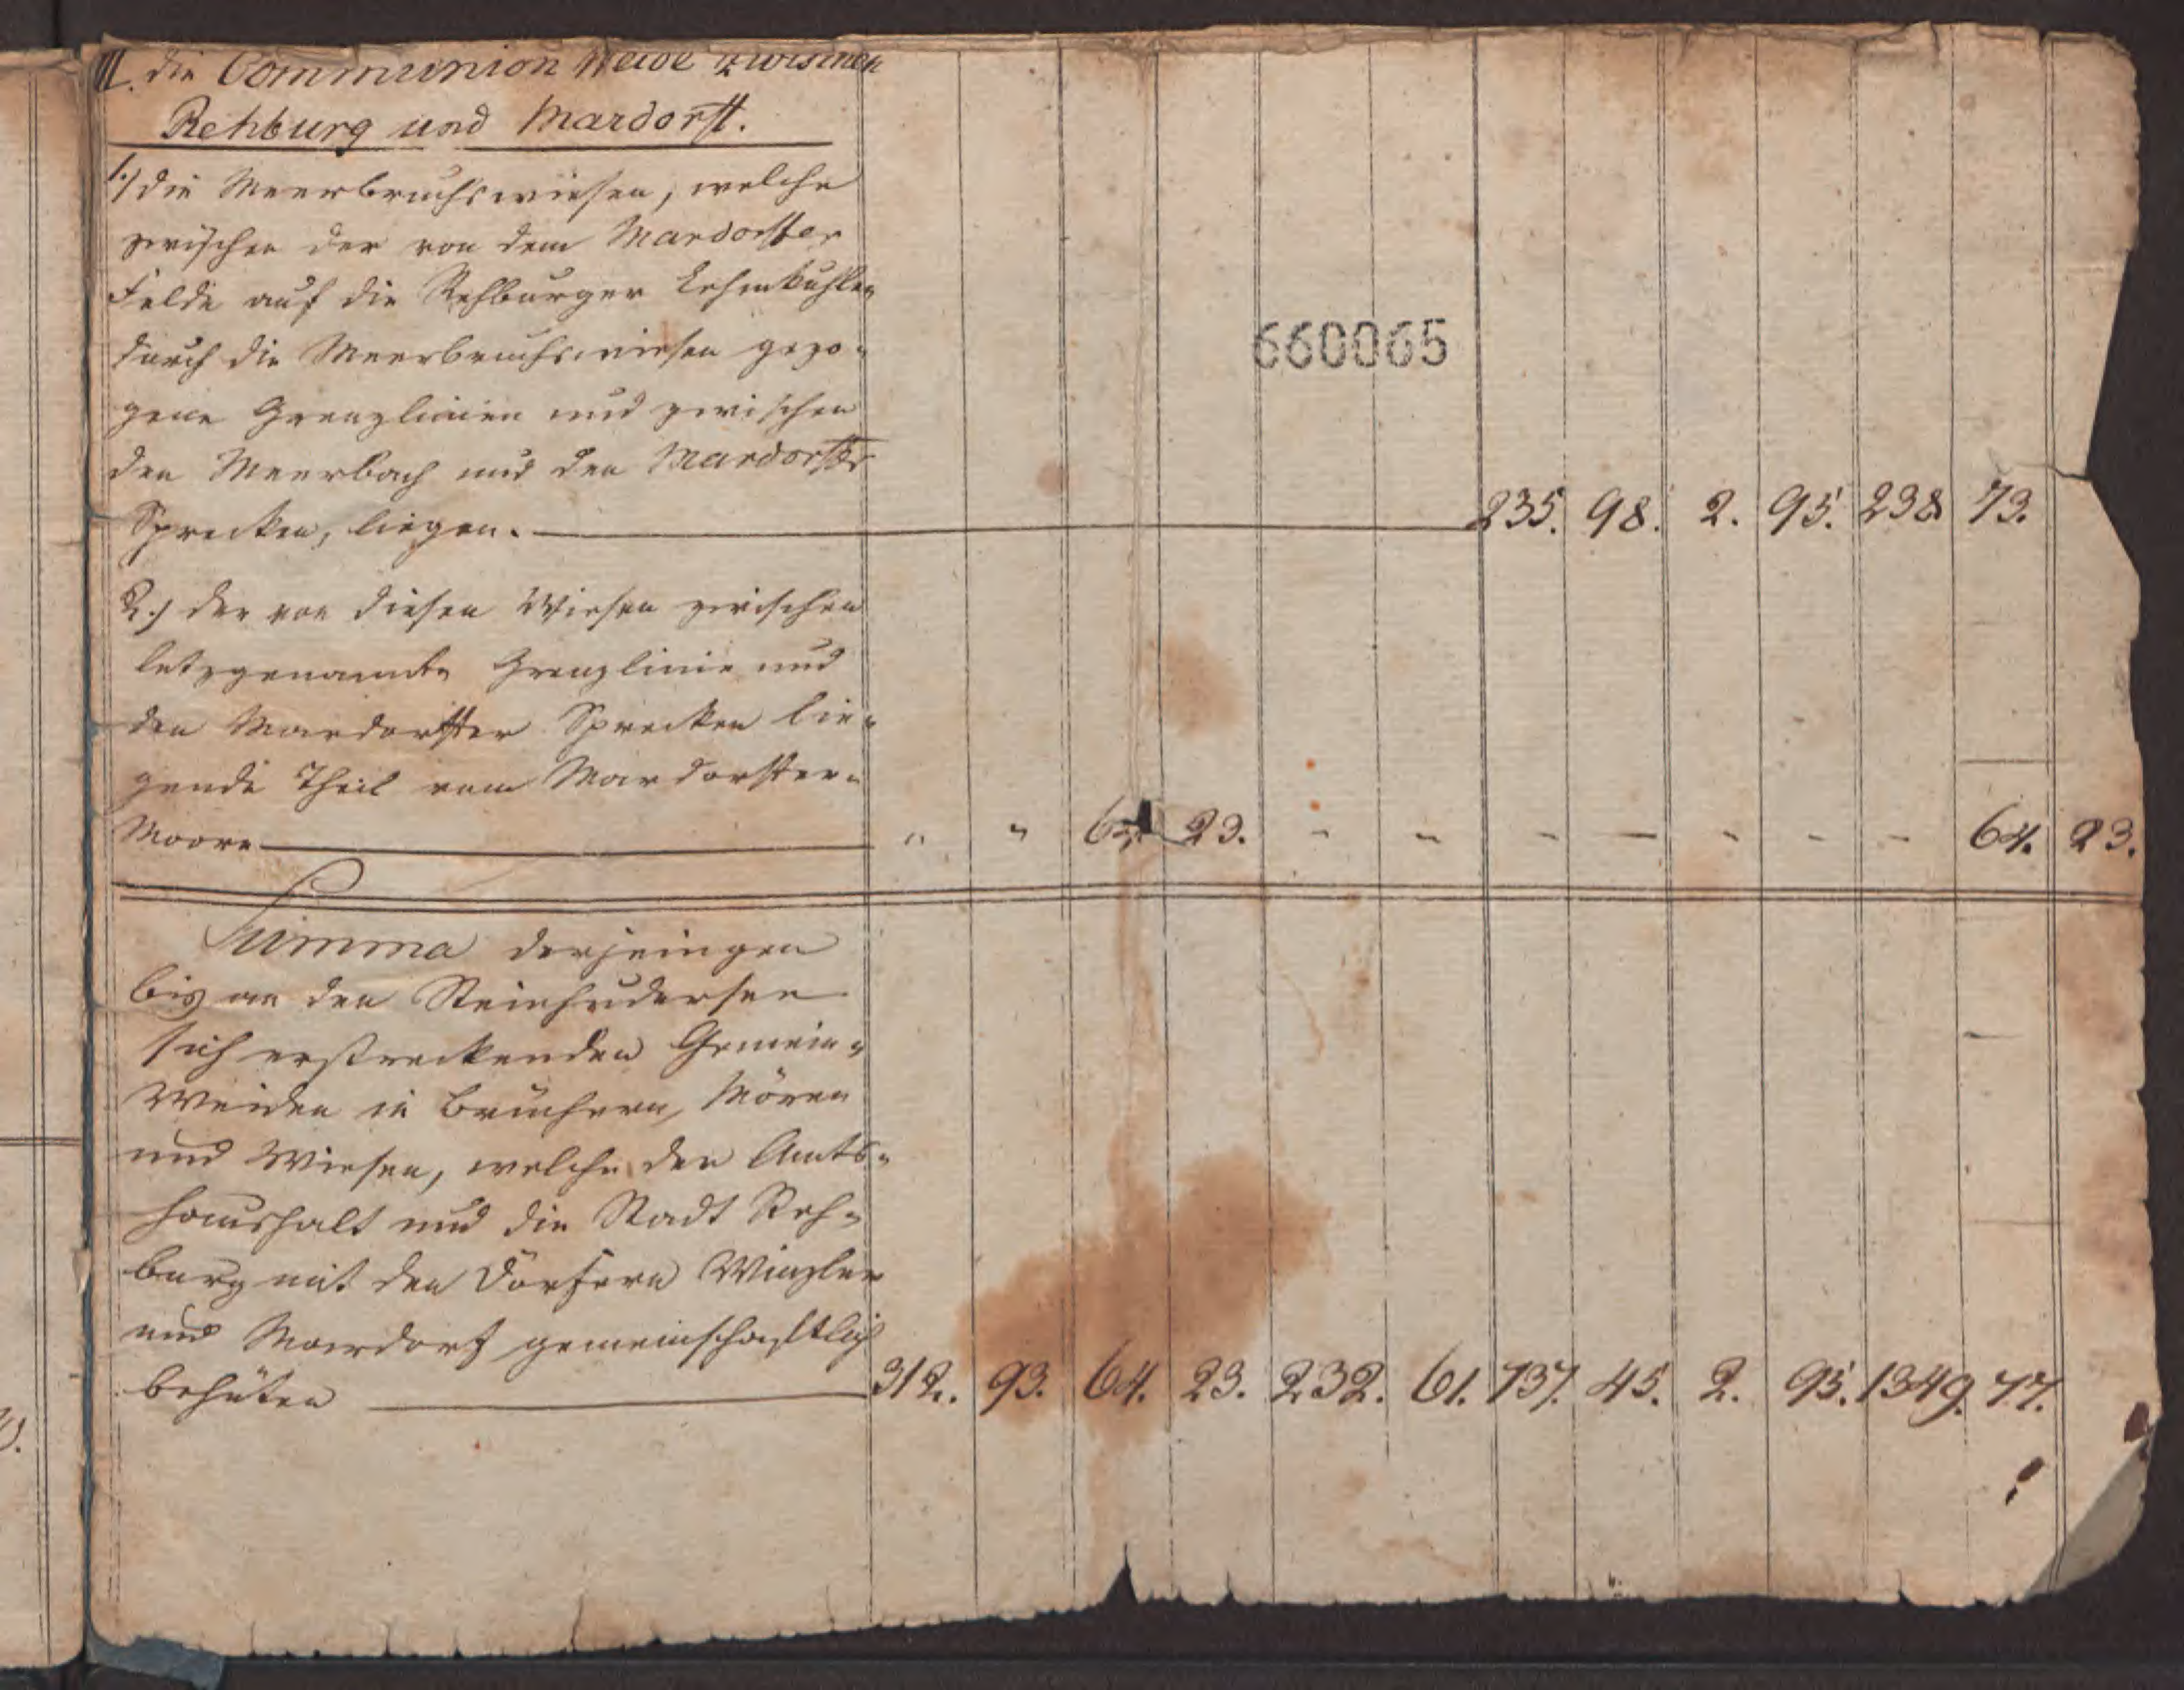 III. die Communion Weide zwischen
Rehburg und Mardorff.
1.) die Meerbruchswiesen, welche
zwischen der von dem Mardorffer
Felde auf die Rehburger Lehmkuhlen
durch die Meerbruchswiesen gezo-
gene Grenzlinien und zwischen
den Meerbach und den Mardorffer
Specken, liegen. 235. 98. 2. 95. 238 73.
660065
2.) der von diesen Wiesen zwischen
letzgenannte Grenzlinie und
den Mardorffer Specken lie-
gende Theil vom Mardorffer-
Moore " " 64 23. - - - - - - - 64. 23.
Summa derjenigen
bis an den Steinhudersee
sich erstreckenden Gemein-
Weiden in Brüchern, Mören
und Wiesen, welche der Amts-
haushalt und die Stadt Reh-
burg mit den Dörfern Winzler
und Mardorf gemeinschaftlich
behüten 312. 93. 64. 23. 232. 61. 737. 45. 2. 95. 1349. 77.